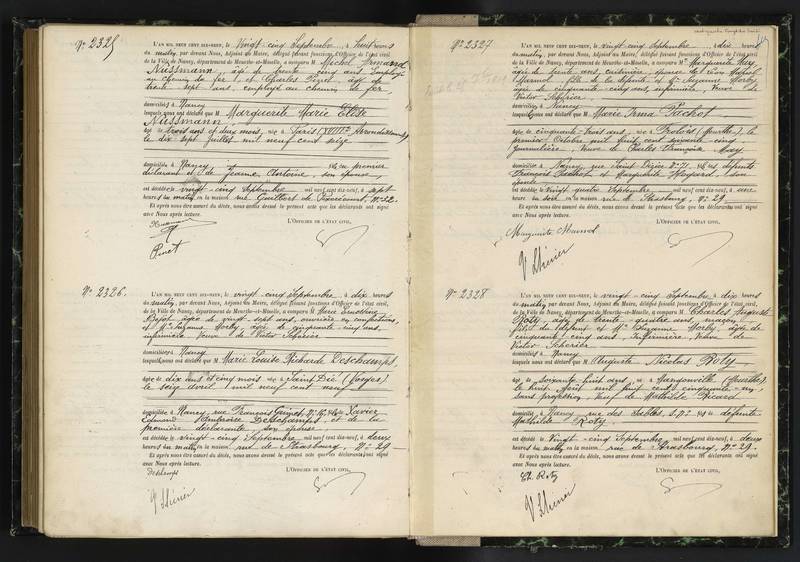 No 2325
L'AN MIL NEUF CENT DIX-NEUF, le Vingt-cinq Septembre à huit heures
du matin, par devant Nous, Adjoint au Maire, délégué faisant fonctions d'Officier de l'état civil
de la Ville de Nancy, département de Meurthe-et-Moselle, a comparu M. Michel Armand
Nussmann, âgé de trente cinq ans Employé
au chemin de fer, et Charles Pinet, âgé de
trente sept ans, employé au chemin de fer
domiciliés à Nancy
lesquels nous ont déclaré que M. Marguerite Marie Elise
Nussmann
âgé de trois ans et deux mois, née à Paris (XVIIIme Arrondissement)
le dix sept juillet mil neuf cent seize
domiciliée à Nancy, fille du premier
déclarant et de Jeanne Antoine, son épouse,
est décédée le vingt-cinq Septembre mil neuf cent dix-neuf, à sept
heures du matin, en la maison rue Guilbert de Pixérécourt, No 22.
Et après nous être assuré du décès, nous avons dressé le présent acte que les déclarants ont signé
avec Nous après lecture.
L'OFFICIER DE L'ÉTAT CIVIL,
Pinet
No 2326.
L'AN MIL NEUF CENT DIX-NEUF, le vingt-cinq Septembre, à dix heures
du matin, par devant Nous, Adjoint au Maire, délégué faisant fonctions d'Officier de l'état civil
de la Ville de Nancy, département de Meurthe-et-Moselle, a comparu M. Marie Ernestine
âgée de vingt sept ans, ouvrière en confections,
et Me Suzanne Morby, âgée de cinquante cinq ans,
infirmière Veuve de Victor Schérier
domiciliés à Nancy
lesquels nous ont déclaré que M. Marie Louise Richarde Deschamps,
âgée de dix ans et cinq mois née à Saint-Dié (Vosges)
le seize avril mil neuf cent neuf
domiciliée à Nancy, rue François Grinet No 16, fille de Xavier
Edmond Ambroise Deschamps, et de la
première déclarante son épouse
est décédée le vingt-cinq Septembre mil neuf cent dix-neuf, à deux
heures du matin en la maison rue de Strasbourg, No 29
Et après nous être assuré du décès, nous avons dressé le présent acte que les déclarants ont signé
avec Nous après lecture.
Deschamps
L'OFFICIER DE L'ÉTAT CIVIL,
V Shérier
No 2327
L'AN MIL NEUF CENT DIX-NEUF, le vingt-cinq Septembre à dix heures
du matin, par devant Nous, Adjoint au Maire, délégué faisant fonctions d'Officier de l'état civil
de la Ville de Nancy, département de Meurthe-et-Moselle, a comparu Me Marguerite May,
âgée de trente ans, cuisinière, épouse de Léon
fille de la défunte et Me Suzanne Morby,
âgée de cinquante-cinq ans, infirmière, Veuve de
Victor Schérier.
domiciliés à Nancy
lesquels nous ont déclaré que M. Marie Irma Pachot
âgée de cinquante-trois ans, née à Prolois (Meurthe), le
premier Octobre mil huit cent soixante-cinq,
journalière, Veuve de Charles François May
domiciliée à Nancy, rue Saint Nizier No 71, fille des défunts
François Pachot et Marguerite son
épouse
est décédée le Vingt quatre Septembre mil neuf cent dix-neuf, à une
heure du soir, en la maison rue de Strasbourg, No 29
Et après nous être assuré du décès, nous avons dressé le présent acte que les déclarants ont signé
avec Nous après lecture.
L'OFFICIER DE L'ÉTAT CIVIL,
Marguerite
V Shérier
No 2328
L'AN MIL NEUF CENT DIX-NEUF, le vingt-cinq Septembre à dix heures
du matin, par devant Nous, Adjoint au Maire, délégué faisant fonctions d'Officier de l'état civil
de la Ville de Nancy, département de Meurthe-et-Moselle, a comparu M. Charles Auguste
Roty, âgé de trente-quatre ans, maçon,
fils du défunt et Me Suzanne Morby, âgée de
cinquante cinq ans, Infirmière, Veuve de
Victor Schérier
domiciliés à Nancy
lesquels nous ont déclaré que M. Auguste Nicolas Roty
âgé de soixante-huit ans, né à Mangonville (Meurthe),
le huit Août mil huit cent cinquante-un,
sans profession, Veuf de Mathilde Picard
domicilié à Nancy rue des Sables, fils de défunte
Mathilde Roty.
est décédé le Vingt-cinq Septembre mil neuf cent dix-neuf, à deux
heures du matin en la maison rue de Strasbourg, No 29.
Et après nous être assuré du décès, nous avons dressé le présent acte que les déclarants ont signé
avec Nous après lecture.
L'OFFICIER DE L'ÉTAT CIVIL,
Ch. Roty
V Shérier